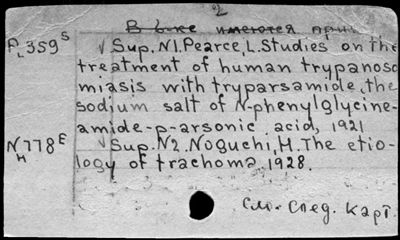 2
В б-ке имеются прил.
P359s √ Sup. N1. Pearce, L. Studies on the
L treatment of human trypanoso
miasis with tryparsamide, the
sodium salt of N-phenylglycine-
amide-p-arsonic acid, 1921
N778E √ Sup. N2. Noguchi, H. The etio-
H logy of trachoma, 1928.
См. след. карт.